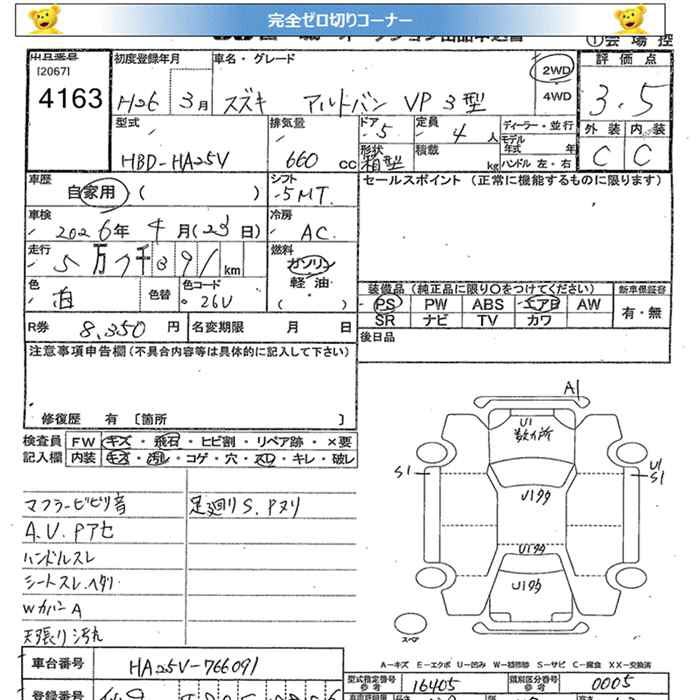 完全ゼロ切りコーナー
①会場控
[2067]
4163
初度登録年月
H26 3月
車名・グレード
スズキ アルトバン VP 3型
2WD
4WD
評価点
3.5
外装 内装
C C
型式
HBD-HA25V
排気量
660 CC
ドア
5
形状
箱型
定員
4人
積載
kg
ディーラー・並行
モデル年式 年
ハンドル 左・右
車歴
自家用 ( )
シフト
5MT.
セールスポイント (正常に機能するものに限ります)
車検
2026年 4月(23日)
冷房
AC.
走行
5万 km
燃料
ガソリン
軽油
( )
色
白
色替
色コード
26U
装備品 (純正品に限り〇をつけてください)
新車保証書
PS PW ABS エアB AW
SR ナビ TV カワ
有・無
R券 8,350円
名変期限 月 日
後日品
注意事項申告欄(不具合内容等は具体的に記入して下さい)
修復歴 有 [箇所 ]
検査員
記入欄
FW キズ・飛石・ヒビ割・リペア跡・×要
内装 キズ・汚れ・コゲ・穴・スレ・キレ・破レ
マフラービビリ音
足廻りS.Pヌリ
A.U.Pアセ
ハンドルスレ
シートスレ.ヘタリ
WカバーA
天張り汚れ
A1
U1
数ヶ所
S1
U1
S1
U1タタ
U1タタ
U1タタ
スペア
A-キズ E-エクボ U-凹み W-補修跡 S-サビ C-腐食 XX-交換済
車台番号
HA25V-766091
型式指定番号
参考
16405
類別区分番号
参考
0005
登録番号